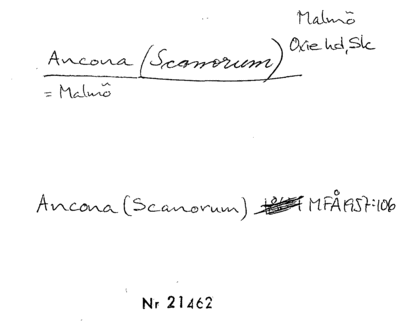 Malmö
Oxie hd, Sk
Ancona (Scanorum)
= Malmö
Ancona (Scanorum) MFÅ 1957:106
Nr 21462